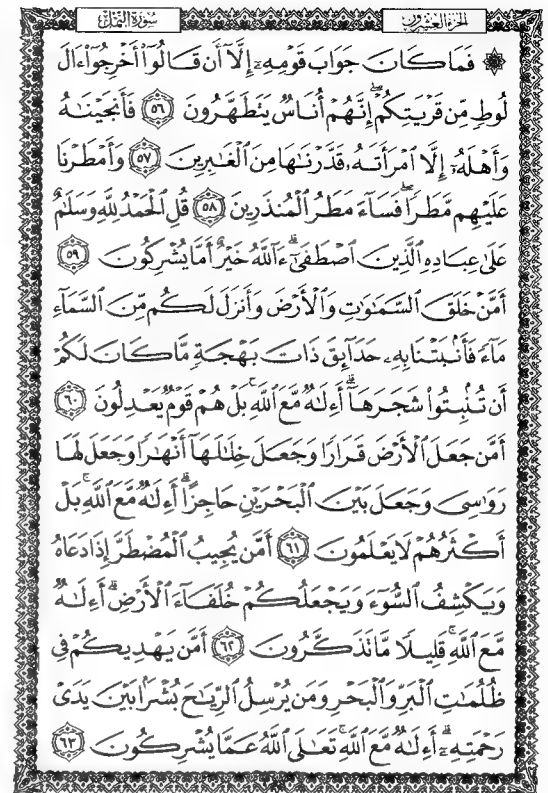 سُورَةُ النَّمْلِ الجزء العشرون
۞ فَمَا كَانَ جَوَابَ قَوْمِهِۦٓ إِلَّآ أَن قَالُوٓا۟ أَخْرِجُوٓا۟ ءَالَ
لُوطٍ مِّن قَرْيَتِكُمْ ۖ إِنَّهُمْ أُنَاسٌ يَتَطَهَّرُونَ ٥٦ فَأَنجَيْنَـٰهُ
وَأَهْلَهُۥٓ إِلَّا ٱمْرَأَتَهُۥ قَدَّرْنَـٰهَا مِنَ ٱلْغَـٰبِرِينَ ٥٧ وَأَمْطَرْنَا
عَلَيْهِم مَّطَرًا ۖ فَسَآءَ مَطَرُ ٱلْمُنذَرِينَ ٥٨ قُلِ ٱلْحَمْدُ لِلَّهِ وَسَلَـٰمٌ
عَلَىٰ عِبَادِهِ ٱلَّذِينَ ٱصْطَفَىٰٓ ۗ ءَآللَّهُ خَيْرٌ أَمَّا يُشْرِكُونَ ٥٩
أَمَّنْ خَلَقَ ٱلسَّمَـٰوَٰتِ وَٱلْأَرْضَ وَأَنزَلَ لَكُم مِّنَ ٱلسَّمَآءِ
مَآءً فَأَنۢبَتْنَا بِهِۦ حَدَآئِقَ ذَاتَ بَهْجَةٍ مَّا كَانَ لَكُمْ
أَن تُنۢبِتُوا۟ شَجَرَهَآ ۗ أَءِلَـٰهٌ مَّعَ ٱللَّهِ ۚ بَلْ هُمْ قَوْمٌ يَعْدِلُونَ ٦٠
أَمَّن جَعَلَ ٱلْأَرْضَ قَرَارًا وَجَعَلَ خِلَـٰلَهَآ أَنْهَـٰرًا وَجَعَلَ لَهَا
رَوَٰسِىَ وَجَعَلَ بَيْنَ ٱلْبَحْرَيْنِ حَاجِزًا ۗ أَءِلَـٰهٌ مَّعَ ٱللَّهِ ۚ بَلْ
أَكْثَرُهُمْ لَا يَعْلَمُونَ ٦١ أَمَّن يُجِيبُ ٱلْمُضْطَرَّ إِذَا دَعَاهُ
وَيَكْشِفُ ٱلسُّوٓءَ وَيَجْعَلُكُمْ خُلَفَآءَ ٱلْأَرْضِ ۗ أَءِلَـٰهٌ
مَّعَ ٱللَّهِ ۚ قَلِيلًا مَّا تَذَكَّرُونَ ٦٢ أَمَّن يَهْدِيكُمْ فِى
ظُلُمَـٰتِ ٱلْبَرِّ وَٱلْبَحْرِ وَمَن يُرْسِلُ ٱلرِّيَـٰحَ بُشْرًۢا بَيْنَ يَدَىْ
رَحْمَتِهِۦٓ ۗ أَءِلَـٰهٌ مَّعَ ٱللَّهِ ۚ تَعَـٰلَى ٱللَّهُ عَمَّا يُشْرِكُونَ ٦٣